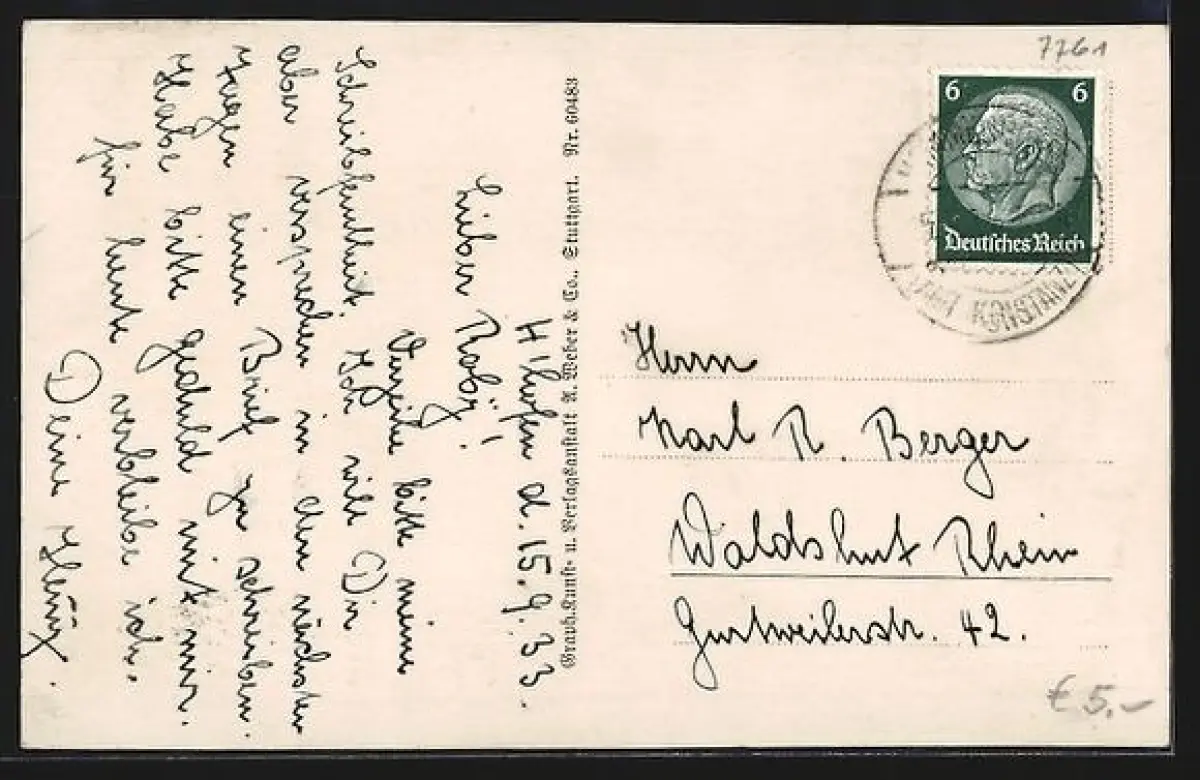 7761
6 6
Deutsches Reich
KONSTANZ
H'hofen d. 15.9.33.
Lieber Roby!
Verzeihe bitte meine
Schreibfaulheit. Ich will Dir
aber versprechen in den nächsten
Tagen einen Brief zu schreiben.
Habe bitte Geduld mit mir.
für heute verbleibe ich,
Deine
Graph. Kunst- u. Verlagsanstalt A. Weber & Co., Stuttgart. Nr. 60483
Herrn
Karl R. Berger
Waldshut Rhein
Gurtweilerstr. 42.
€ 5,-